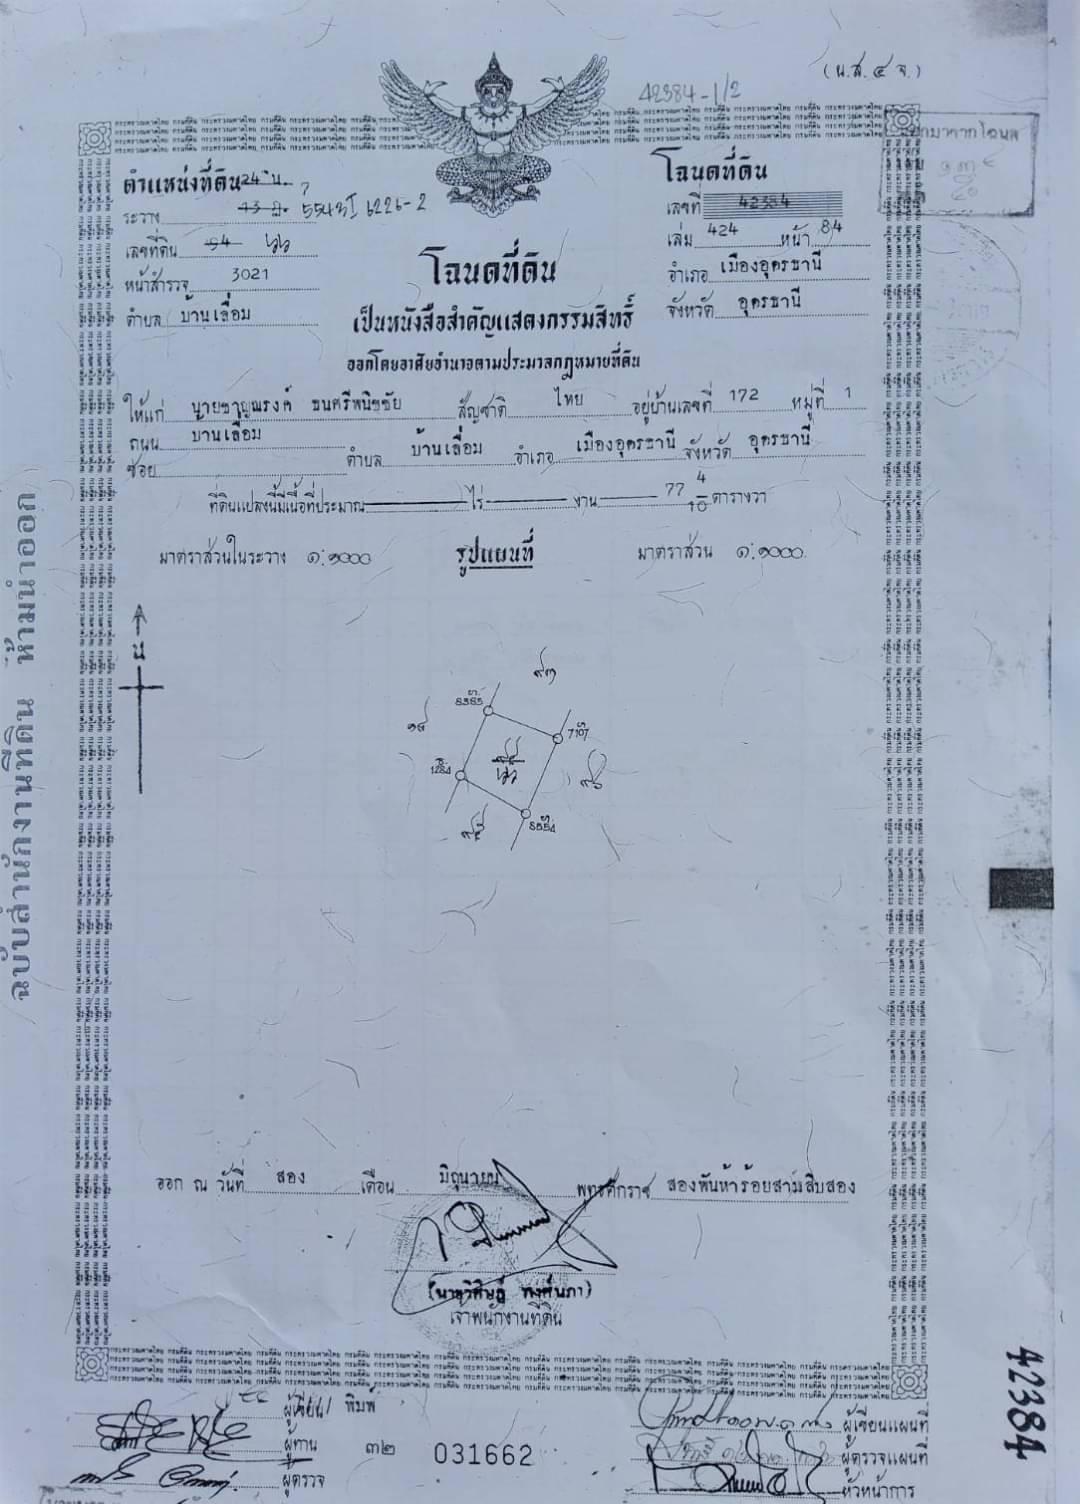 (น.ส. ๔ จ.)
42384-1/2
ตำแหน่งที่ดิน 24
ระวาง 5543 I 6226-2
เลขที่ดิน ๖๖
หน้าสำรวจ 3021
ตำบล บ้านเลื่อม
โฉนดที่ดิน
เลขที่ 42384
เล่ม 424 หน้า 84
อำเภอ เมืองอุดรธานี
จังหวัด อุดรธานี
โฉนดที่ดิน
เป็นหนังสือสำคัญแสดงกรรมสิทธิ์
ออกโดยอาศัยอำนาจตามประมวลกฎหมายที่ดิน
ให้แก่ นายชาญณรงค์ ธนศรีพนิชชัย สัญชาติ ไทย อยู่บ้านเลขที่ 172 หมู่ที่ 1
ถนน บ้านเลื่อม
ซอย ตำบล บ้านเลื่อม อำเภอ เมืองอุดรธานี จังหวัด อุดรธานี
ที่ดินแปลงนี้มีเนื้อที่ประมาณ ไร่ งาน 77 4/10 ตารางวา
มาตราส่วนในระวาง ๑:๑๐๐๐ รูปแผนที่ มาตราส่วน ๑:๑๐๐๐
น
๙๗
8385
7107
๖๖
1284
8554
ออก ณ วันที่ สอง เดือน มิถุนายน พุทธศักราช สองพันห้าร้อยสามสิบสอง
เจ้าพนักงานที่ดิน
ผู้เขียน/พิมพ์
ผู้ทาน
ผู้ตรวจ
๓๒ 031662
ผู้เขียนแผนที่
ผู้ตรวจแผนที่
หัวหน้าการ
ฉบับสำนักงานที่ดิน ห้ามนำออก
42384